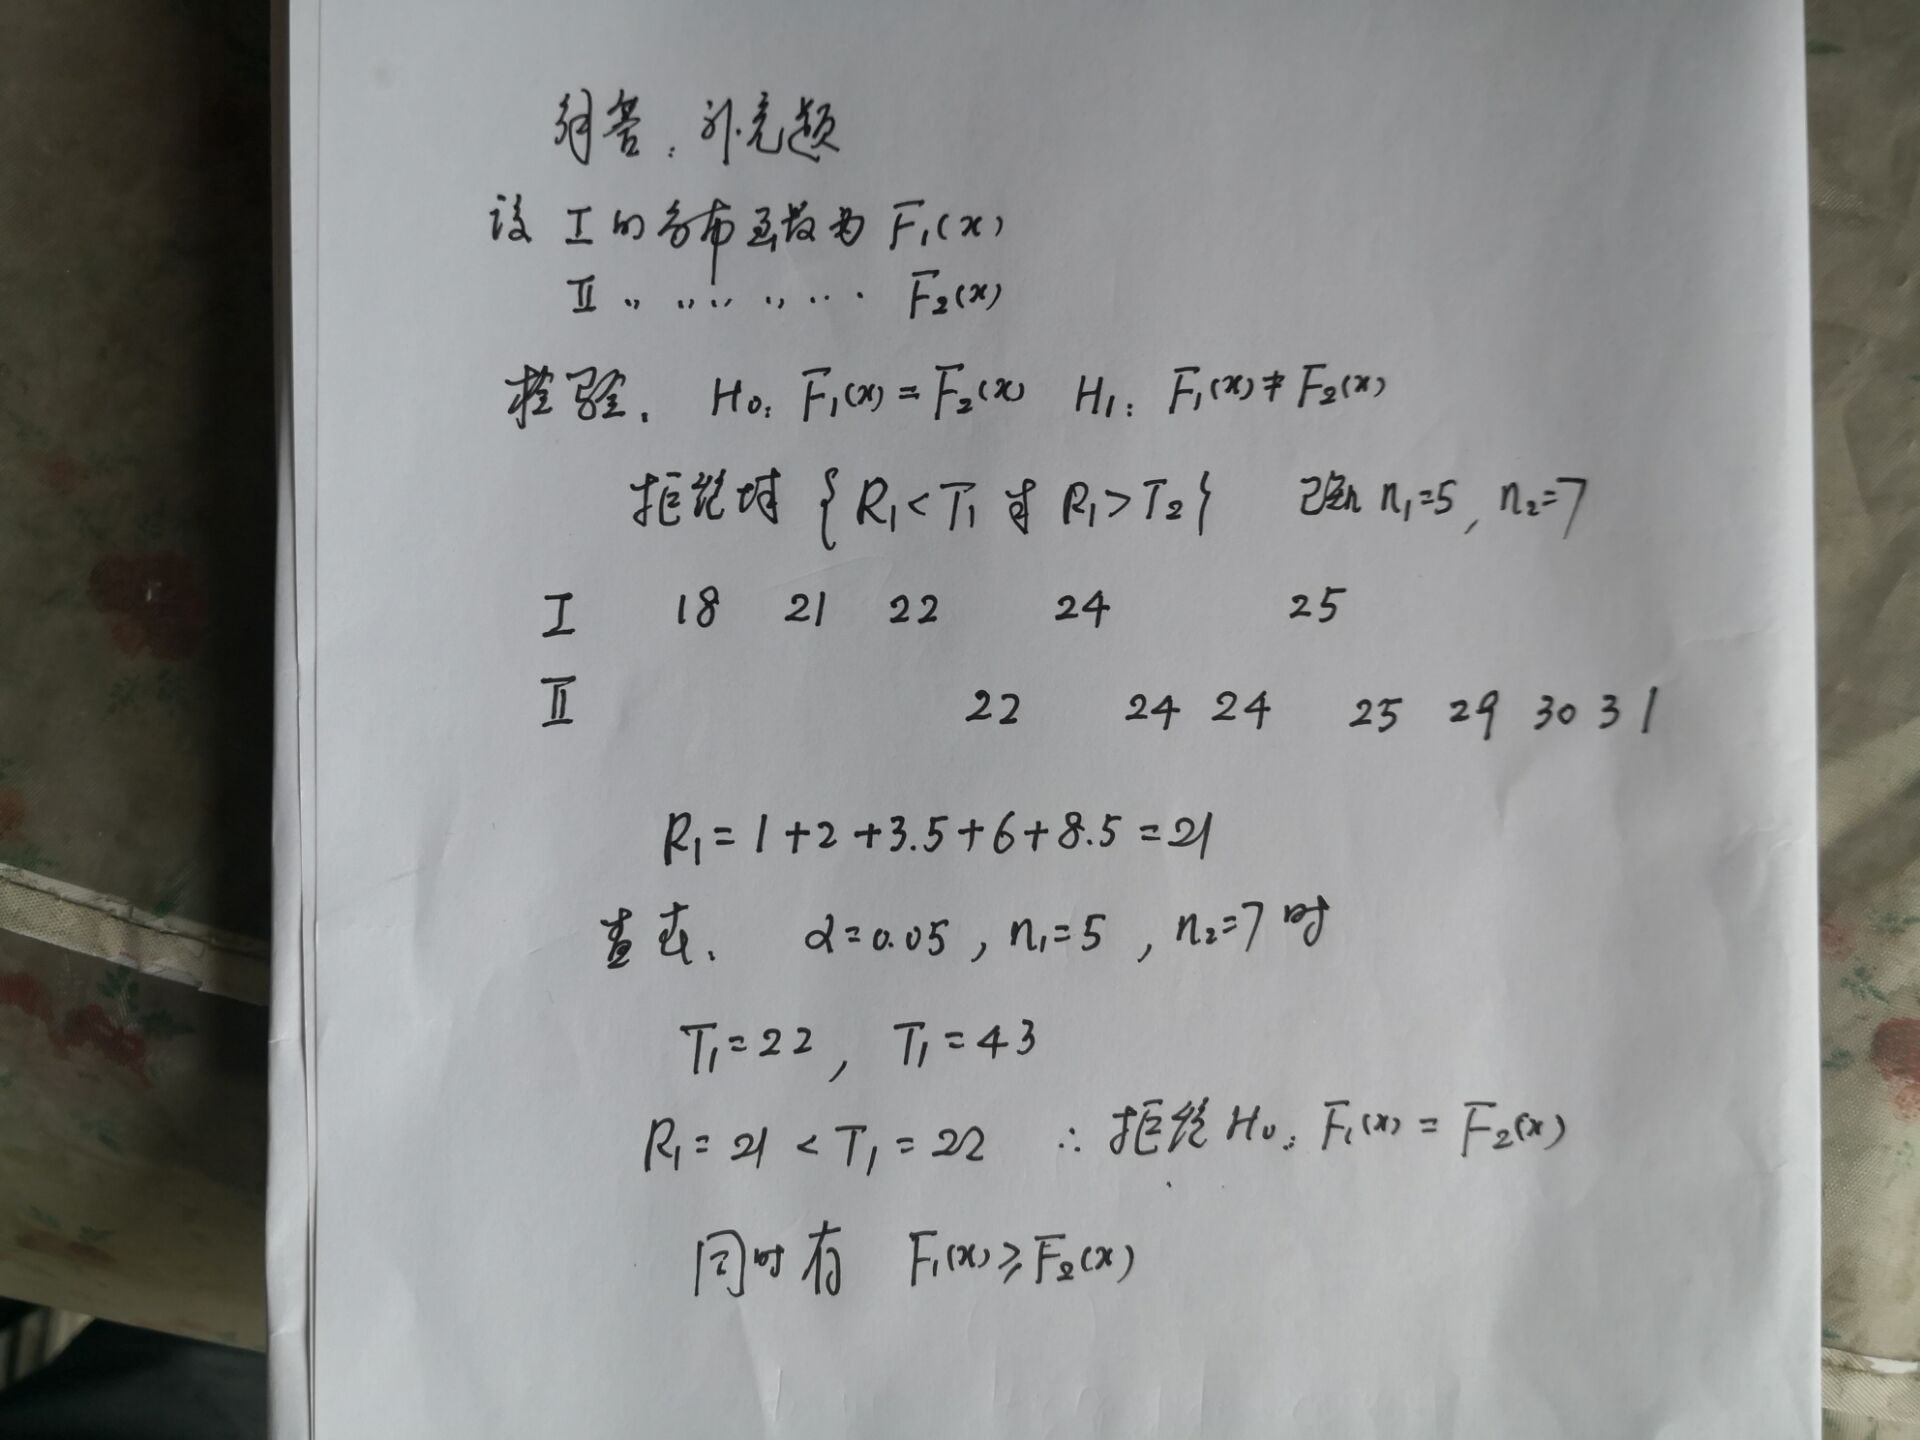 解答：补充题
设 I 的分布函数为 F₁(x)
II 〃 〃〃 〃 ‥ · F₂(x)
检验. H₀: F₁(x) = F₂(x) H₁: F₁(x) ≠ F₂(x)
拒绝域 { R₁ < T₁ 或 R₁ > T₂ } 已知 n₁=5, n₂=7
I 18 21 22 24 25
II 22 24 24 25 29 30 31
R₁ = 1 + 2 + 3.5 + 6 + 8.5 = 21
查表. α = 0.05, n₁ = 5, n₂ = 7 时
T₁ = 22, T₁ = 43
R₁ = 21 < T₁ = 22 ∴ 拒绝 H₀: F₁(x) = F₂(x)
同时有 F₁(x) ⩾ F₂(x)